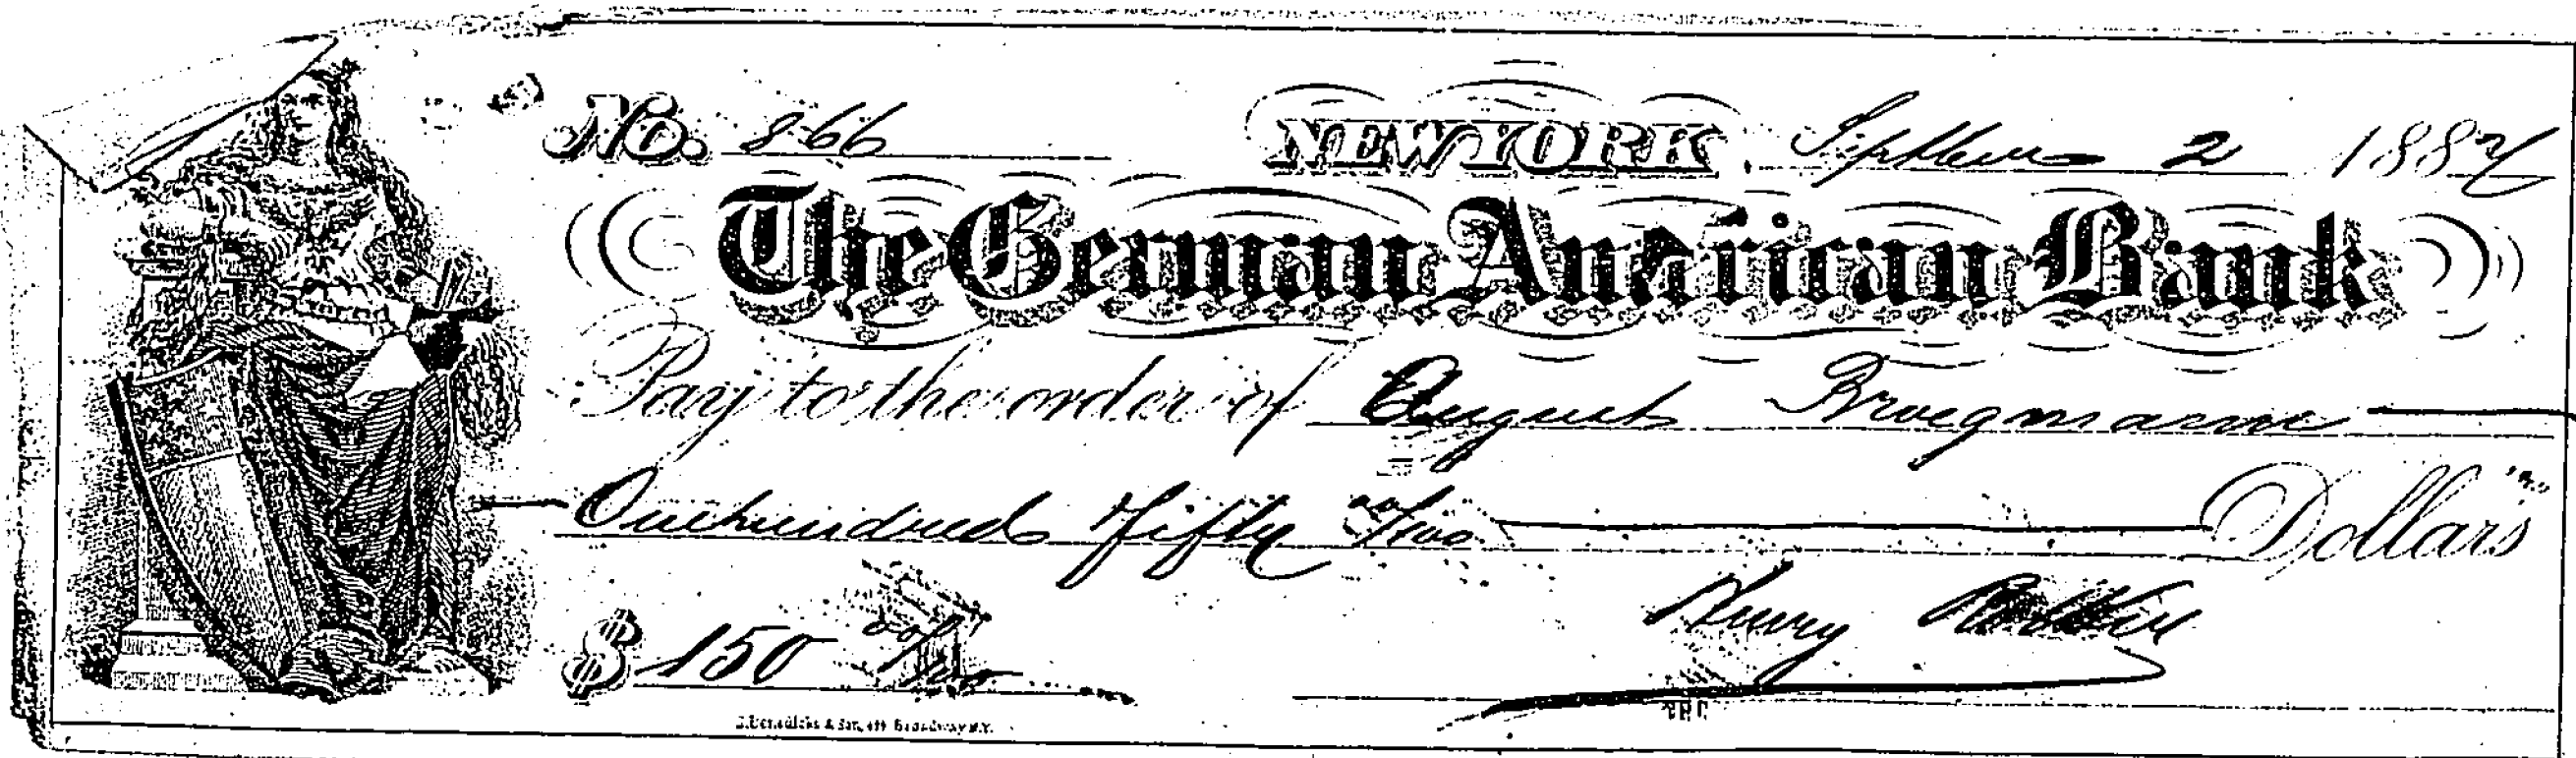 No. 866 NEW YORK, September 2 188
The German American Bank
Pay to the order of August Bruegmann
One hundred Fifty 00/100 Dollars
$ 150 00/100 Henry